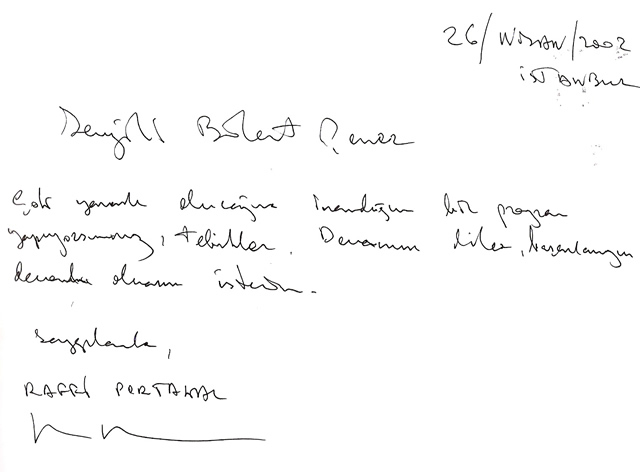 26/NİSAN/2002
İSTANBUL
Bülent
Çok yararlı olacağına inandığım bir program
yapıyorsunuz, tebrikler. Devamını diler, başarılarınızın
devamlı olmasını isterim.
Saygılarla,
RAFFİ PORTAKAL